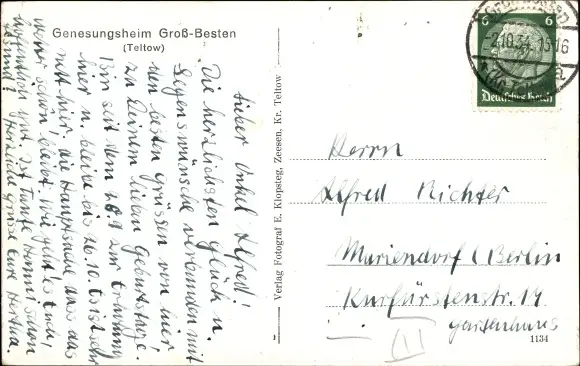 Genesungsheim Groß-Besten
(Teltow)
Lieber Onkel Alfred!
Die herzlichsten Glück u.
Segenswünsche verbunden mit
den besten Grüssen von hier
zu Deinem lieben Geburtstage!
Bin seit dem zur Erholung
hier u. bleibe bis 26.10. Es ist sehr
nett hier, die Hauptsache dass das
Wetter schön bleibt. Wie geht es Euch,
hoffentlich gut. Ist Tante schon
gesund? Herzliche Grüsse Eure Hertha.
Verlag Fotograf E. Klopsteg, Zeesen, Kr. Teltow
6 6
Deutsches Reich
2.10.34. 15-16
Herrn
Alfred Richter
Mariendorf (Berlin
Kurfürstenstr. 14
Gartenhaus
1134